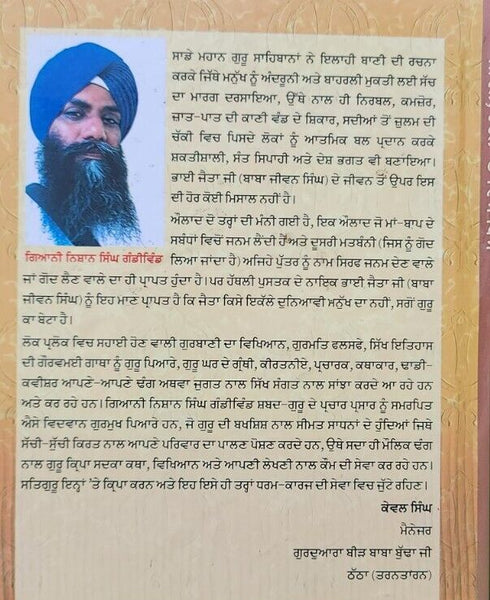 ਸਾਡੇ ਮਹਾਨ ਗੁਰੂ ਸਾਹਿਬਾਨਾਂ ਨੇ ਇਲਾਹੀ ਬਾਣੀ ਦੀ ਰਚਨਾ
ਕਰਕੇ ਜਿੱਥੇ ਮਨੁੱਖ ਨੂੰ ਅੰਦਰੂਨੀ ਅਤੇ ਬਾਹਰਲੀ ਮੁਕਤੀ ਲਈ ਸੱਚ
ਦਾ ਮਾਰਗ ਦਰਸਾਇਆ, ਉੱਥੇ ਨਾਲ ਹੀ ਨਿਰਬਲ, ਕਮਜ਼ੋਰ,
ਜ਼ਾਤ-ਪਾਤ ਦੀ ਕਾਣੀ ਵੰਡ ਦੇ ਸ਼ਿਕਾਰ, ਸਦੀਆਂ ਤੋਂ ਜ਼ੁਲਮ ਦੀ
ਚੱਕੀ ਵਿਚ ਪਿਸਦੇ ਲੋਕਾਂ ਨੂੰ ਆਤਮਿਕ ਬਲ ਪ੍ਰਦਾਨ ਕਰਕੇ
ਸ਼ਕਤੀਸ਼ਾਲੀ, ਸੰਤ ਸਿਪਾਹੀ ਅਤੇ ਦੇਸ਼ ਭਗਤ ਵੀ ਬਣਾਇਆ।
ਭਾਈ ਜੈਤਾ ਜੀ (ਬਾਬਾ ਜੀਵਨ ਸਿੰਘ) ਦੇ ਜੀਵਨ ਤੋਂ ਉਪਰ ਇਸ
ਦੀ ਹੋਰ ਕੋਈ ਮਿਸਾਲ ਨਹੀਂ ਹੈ।
ਔਲਾਦ ਦੋ ਤਰ੍ਹਾਂ ਦੀ ਮੰਨੀ ਗਈ ਹੈ, ਇਕ ਔਲਾਦ ਜੋ ਮਾਂ-ਬਾਪ ਦੇ
ਸਬੰਧਾਂ ਵਿਚੋਂ ਜਨਮ ਲੈਂਦੀ ਹੈ ਅਤੇ ਦੂਸਰੀ ਮਤਬੰਨੀ (ਜਿਸ ਨੂੰ ਗੋਦ
ਗਿਆਨੀ ਨਿਸ਼ਾਨ ਸਿੰਘ ਗੰਡੀਵਿੰਡ ਲਿਆ ਜਾਂਦਾ ਹੈ) ਅਜਿਹੇ ਪੁੱਤਰ ਨੂੰ ਨਾਮ ਸਿਰਫ ਜਨਮ ਦੇਣ ਵਾਲੇ
ਜਾਂ ਗੋਦ ਲੈਣ ਵਾਲੇ ਦਾ ਹੀ ਪ੍ਰਾਪਤ ਹੁੰਦਾ ਹੈ। ਪਰ ਹੱਥਲੀ ਪੁਸਤਕ ਦੇ ਨਾਇਕ ਭਾਈ ਜੈਤਾ ਜੀ (ਬਾਬਾ
ਜੀਵਨ ਸਿੰਘ) ਨੂੰ ਇਹ ਮਾਣ ਪ੍ਰਾਪਤ ਹੈ ਕਿ ਜੈਤਾ ਕਿਸੇ ਇਕੱਲੇ ਦੁਨਿਆਵੀ ਮਨੁੱਖ ਦਾ ਨਹੀਂ, ਸਗੋਂ ਗੁਰੂ
ਕਾ ਬੇਟਾ ਹੈ।
ਲੋਕ ਪ੍ਰਲੋਕ ਵਿਚ ਸਹਾਈ ਹੋਣ ਵਾਲੀ ਗੁਰਬਾਣੀ ਦਾ ਵਿਖਿਆਨ, ਗੁਰਮਤਿ ਫਲਸਫੇ, ਸਿੱਖ ਇਤਿਹਾਸ
ਦੀ ਗੌਰਵਮਈ ਗਾਥਾ ਨੂੰ ਗੁਰੂ ਪਿਆਰੇ, ਗੁਰੂ ਘਰ ਦੇ ਗ੍ਰੰਥੀ, ਕੀਰਤਨੀਏ, ਪ੍ਰਚਾਰਕ, ਕਥਾਕਾਰ, ਢਾਡੀ-
ਕਵੀਸ਼ਰ ਆਪਣੇ-ਆਪਣੇ ਢੰਗ ਅਥਵਾ ਜੁਗਤ ਨਾਲ ਸਿੱਖ ਸੰਗਤ ਨਾਲ ਸਾਂਝਾ ਕਰਦੇ ਆ ਰਹੇ ਹਨ
ਅਤੇ ਕਰ ਰਹੇ ਹਨ। ਗਿਆਨੀ ਨਿਸ਼ਾਨ ਸਿੰਘ ਗੰਡੀਵਿੰਡ ਸ਼ਬਦ-ਗੁਰੂ ਦੇ ਪ੍ਰਚਾਰ ਪ੍ਰਸਾਰ ਨੂੰ ਸਮਰਪਿਤ
ਐਸੇ ਵਿਦਵਾਨ ਗੁਰਮੁਖ ਪਿਆਰੇ ਹਨ, ਜੋ ਗੁਰੂ ਦੀ ਬਖਸ਼ਿਸ਼ ਨਾਲ ਸੀਮਤ ਸਾਧਨਾਂ ਦੇ ਹੁੰਦਿਆਂ ਜਿਥੇ
ਸੱਚੀ-ਸੁੱਚੀ ਕਿਰਤ ਨਾਲ ਆਪਣੇ ਪਰਿਵਾਰ ਦਾ ਪਾਲਣ ਪੋਸ਼ਣ ਕਰਦੇ ਹਨ, ਉਥੇ ਸਦਾ ਹੀ ਮੌਲਿਕ ਢੰਗ
ਨਾਲ ਗੁਰੂ ਕ੍ਰਿਪਾ ਸਦਕਾ ਕਥਾ, ਵਿਖਿਆਨ ਅਤੇ ਆਪਣੀ ਲੇਖਣੀ ਨਾਲ ਕੌਮ ਦੀ ਸੇਵਾ ਕਰ ਰਹੇ ਹਨ।
ਸਤਿਗੁਰੂ ਇਨ੍ਹਾਂ 'ਤੇ ਕ੍ਰਿਪਾ ਕਰਨ ਅਤੇ ਇਹ ਇਸੇ ਹੀ ਤਰ੍ਹਾਂ ਧਰਮ-ਕਾਰਜ ਦੀ ਸੇਵਾ ਵਿਚ ਜੁੱਟੇ ਰਹਿਣ।
ਕੇਵਲ ਸਿੰਘ
ਮੈਨੇਜਰ
ਗੁਰਦੁਆਰਾ ਬੀੜ ਬਾਬਾ ਬੁੱਢਾ ਜੀ
ਠੱਠਾ (ਤਰਨਤਾਰਨ)